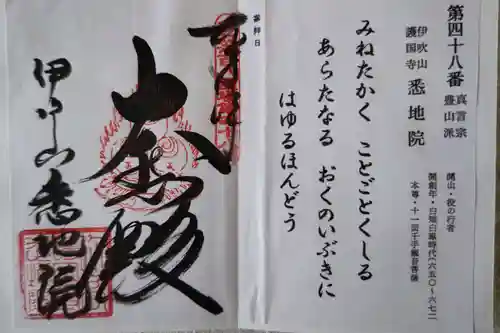 第四十八番 真言宗
豊山派
伊吹山
護国寺 悉地院
開山・役の行者
開創年・白雉白鳳時代(六五〇~六七二
本尊・十一面千手観音菩薩
みねたかく ことごとくしる
あらたなる おくのいぶきに
はゆるほんどう
参拝日
大悲殿
伊吹山悉地院